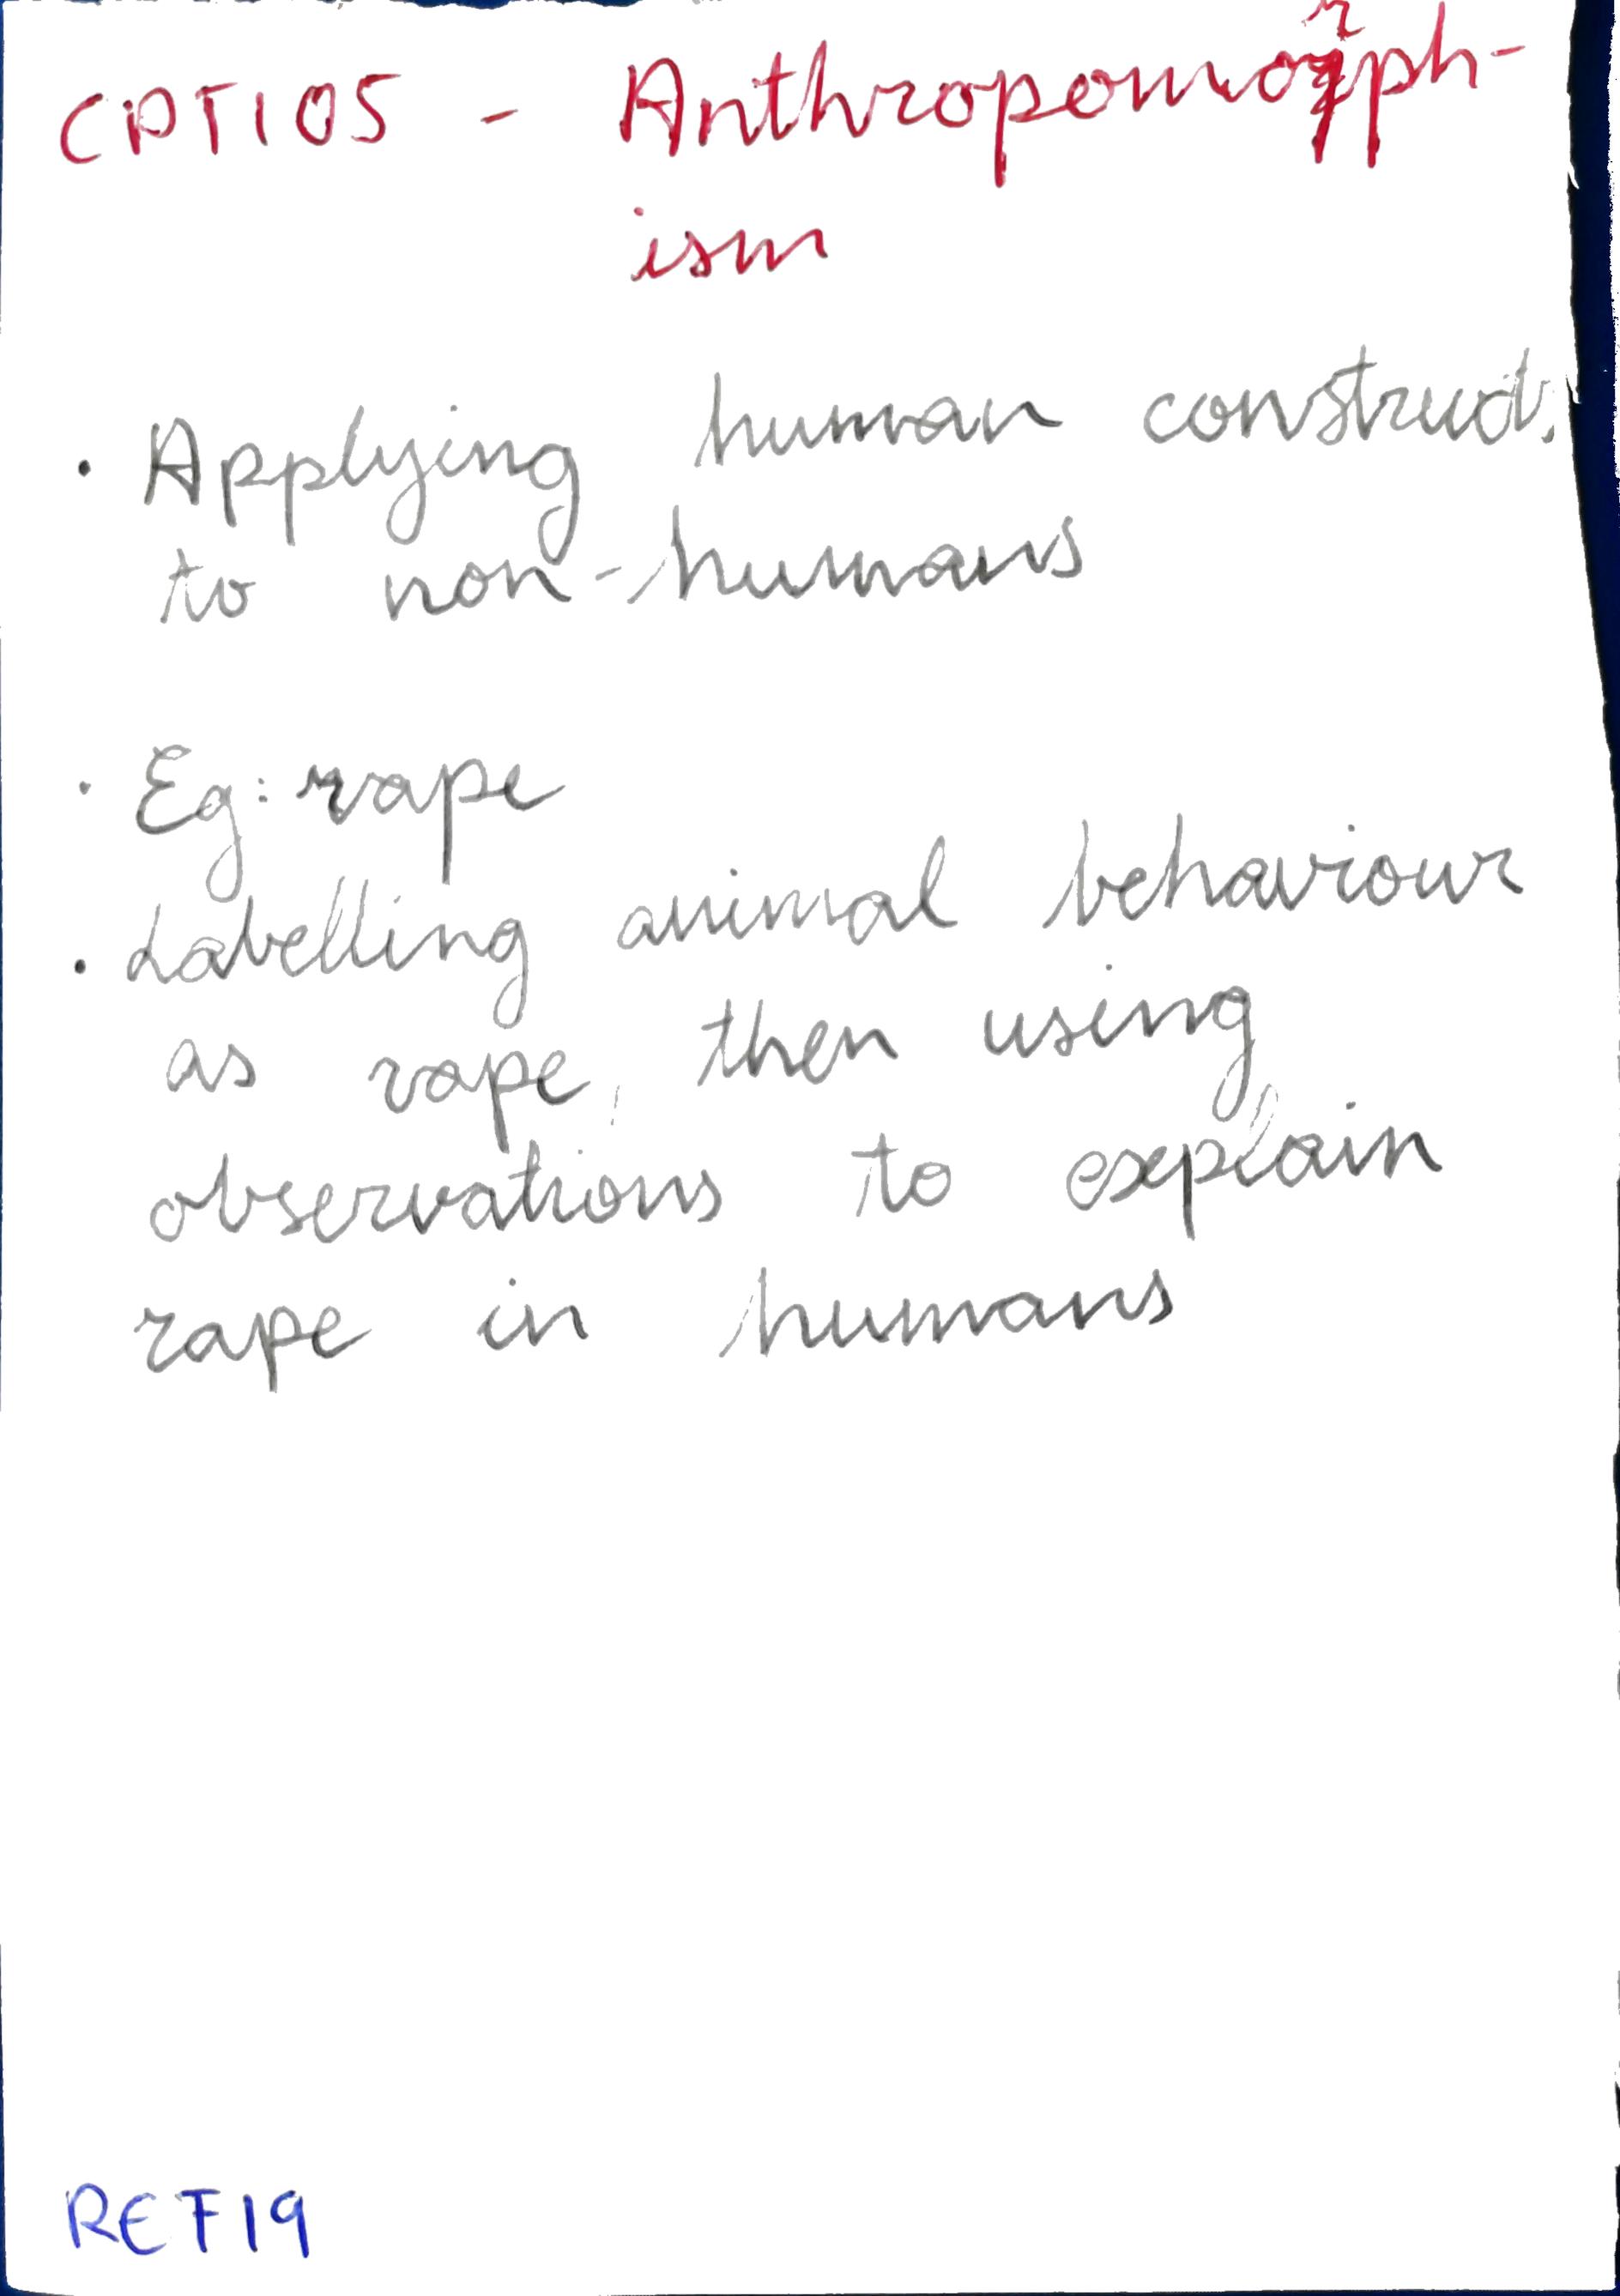 CPT105 - Anthropomorph-
ism
· Applying human constructs
to non-humans
· Eg: rape
· Labelling animal behaviour
as rape, then using
observations to explain
rape in humans
REF19